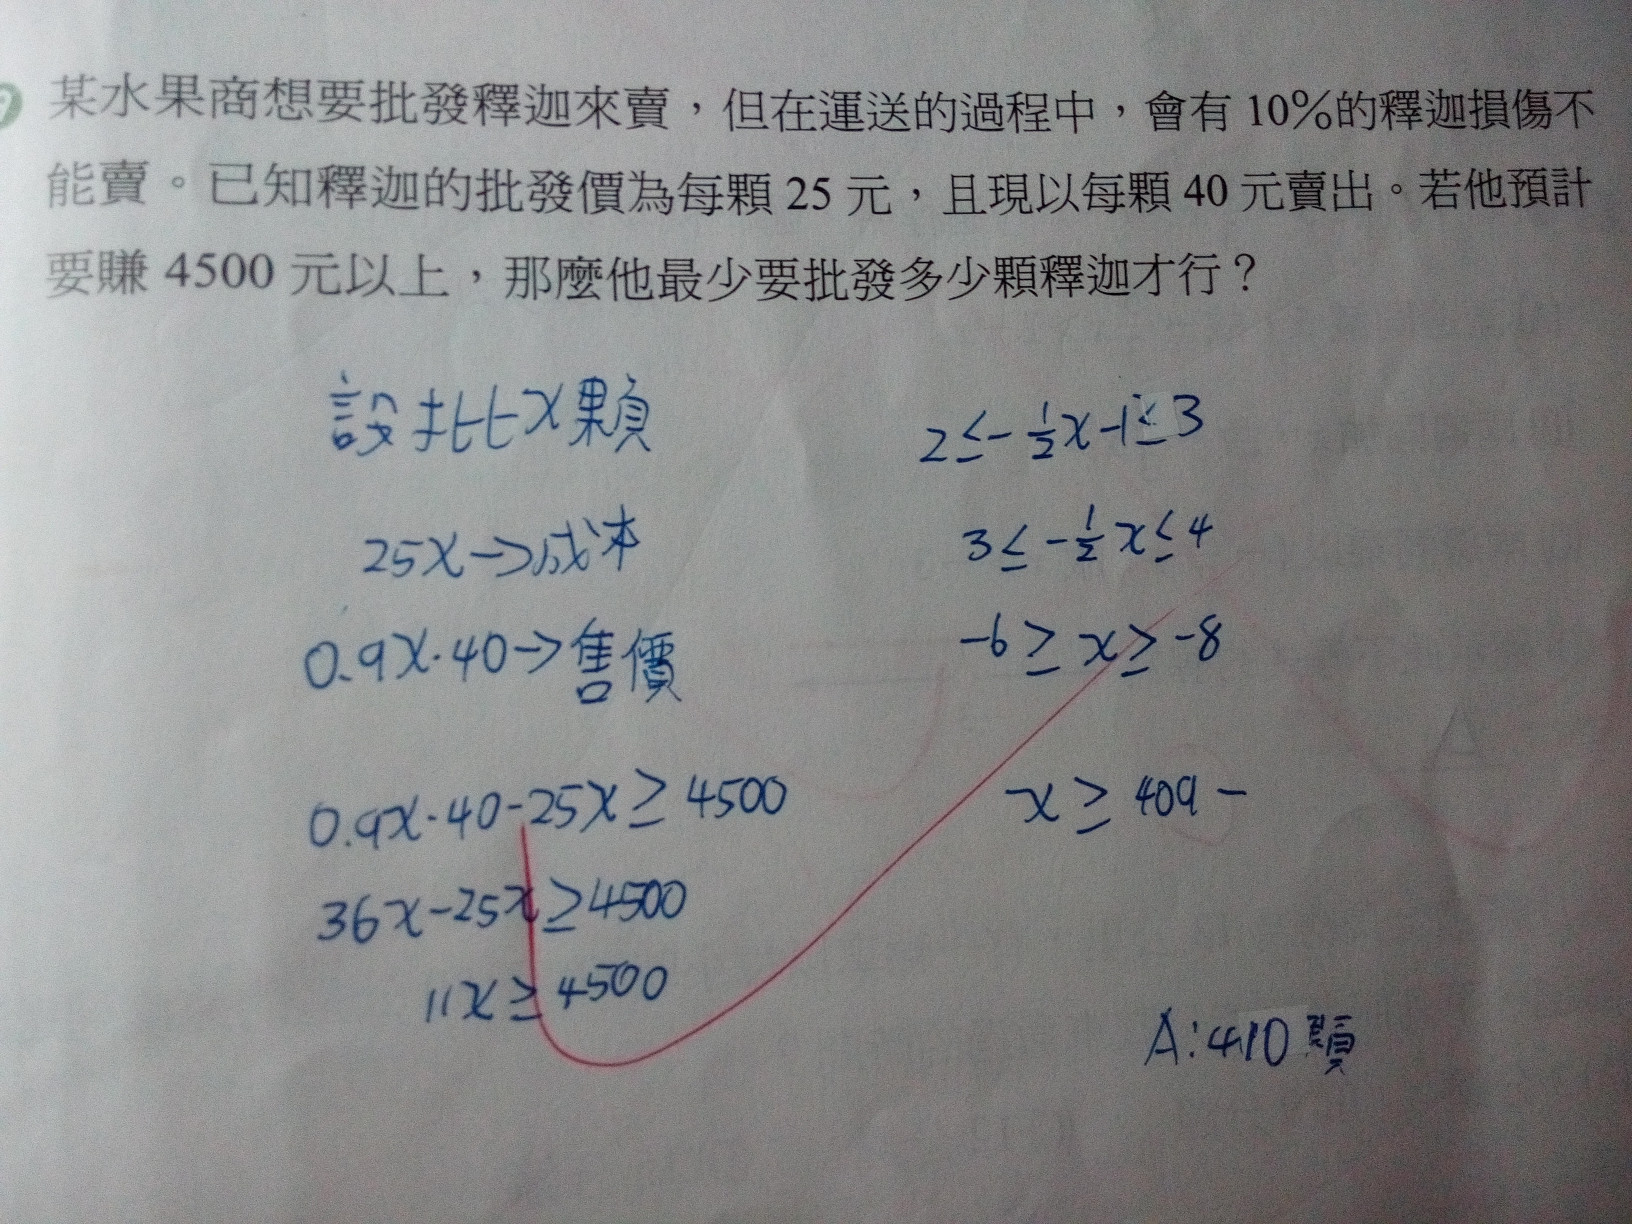 某水果商想要批發釋迦來賣，但在運送的過程中，會有10%的釋迦損傷不
能賣。已知釋迦的批發價為每顆25元，且現以每顆40元賣出。若他預計
要賺4500元以上，那麼他最少要批發多少顆釋迦才行？
設批x顆
25x→成本
0.9x·40→售價
0.9x·40-25x≥4500
36x-25x≥4500
11x≥4500
2≤-½x-1≤3
3≤-½x≤4
-6≥x≥-8
x≥409-
A:410顆